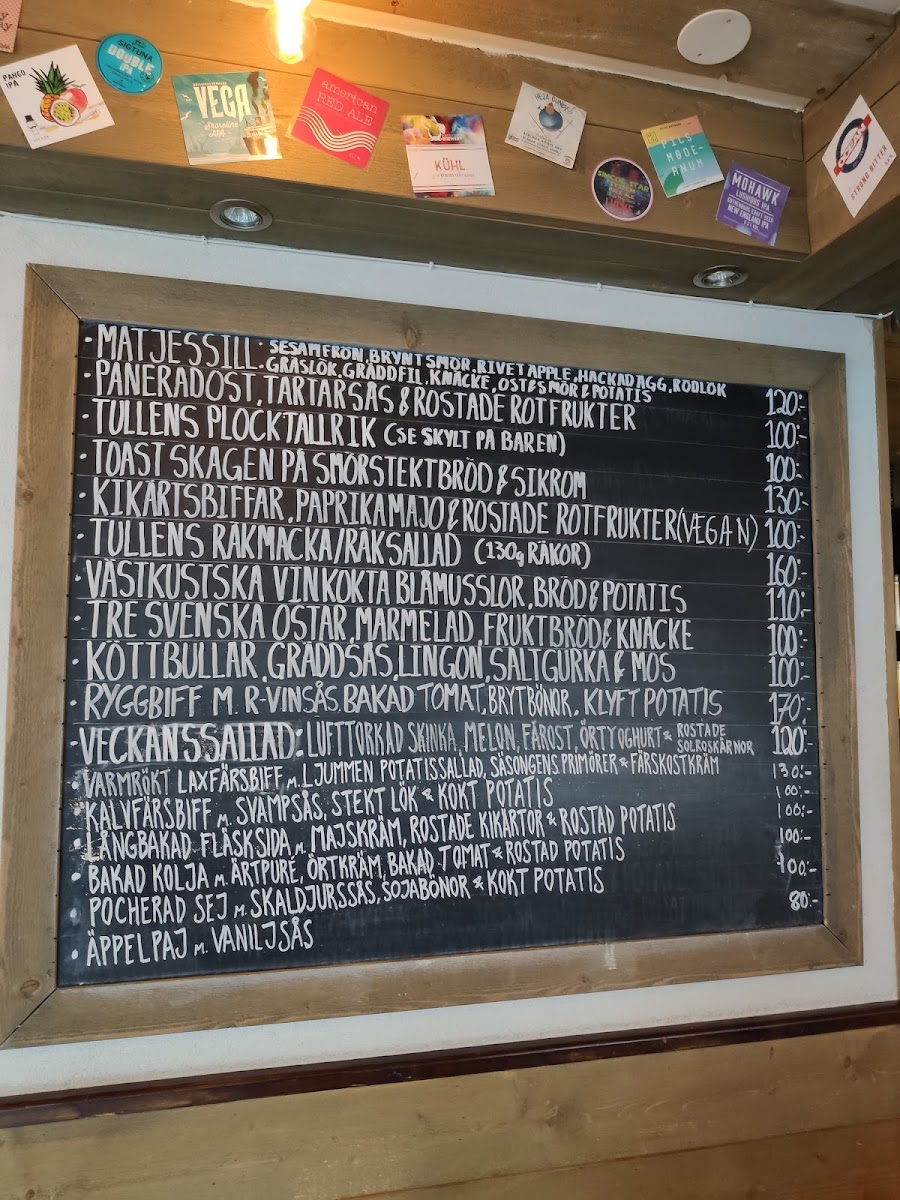 PANGO IPA
SIGTUNA
DOUBLE
IPA
VEGA
american
RED ALE
KÜHL
PILS
MØDE-
RNUM
MOHAWK
LUSHIOUS IPA
NEW ENGLAND IPA
STRONG BITTER
·MATJESSILL· SESAMFRÖN, BRYNT SMÖR, RIVET ÄPPLE, HACKAD ÄGG, RÖDLÖK
·GRÄSLÖK, GRÄDDFIL, KNÄCKE, OST & SMÖR & POTATIS 120:-
·PANERAD OST, TARTARSÅS & ROSTADE ROTFRUKTER 100:-
·TULLENS PLOCKTALLRIK (SE SKYLT PÅ BAREN) 100:-
·TOAST SKAGEN PÅ SMÖRSTEKT BRÖD & SIKROM 130:-
·KIKÄRTSBIFFAR, PAPRIKAMAJO & ROSTADE ROTFRUKTER (VÆGAN) 100:-
·TULLENS RÄKMACKA/RÄKSALLAD (130g RÄKOR) 160:-
·VÄSTKUSTSKA VINKOKTA BLÅMUSSLOR, BRÖD & POTATIS 110:-
·TRE SVENSKA OSTAR, MARMELAD, FRUKTBRÖD & KNÄCKE 100:-
·KÖTTBULLAR, GRÄDDSÅS, LINGON, SALTGURKA & MOS 100:-
·RYGGBIFF M. R-VINSÅS, BAKAD TOMAT, BRYTBÖNOR, KLYFTPOTATIS 170:-
·VECKANS SALLAD: LUFTTORKAD SKINKA, MELON, FÅROST, ÖRTYOGHURT & ROSTADE SOLROSKÄRNOR 120:-
·VARMRÖKT LAXFÄRSBIFF M. LJUMMEN POTATISSALLAD, SÄSONGENS PRIMÖRER & FÄRSKOSTKRÄM 130:-
·KALVFÄRSBIFF M. SVAMPSÅS, STEKT LÖK & KOKT POTATIS 100:-
·LÅNGBAKAD FLÄSKSIDA M. MAJSKRÄM, ROSTADE KIKÄRTOR & ROSTAD POTATIS 100:-
·BAKAD KOLJA M. ÄRTPURÉ, ÖRTKRÄM, BAKAD TOMAT & ROSTAD POTATIS 100:-
·POCHERAD SEJ M. SKALDJURSSÅS, SOJABÖNOR & KOKT POTATIS 100:-
·ÄPPELPAJ M. VANILJSÅS 80:-